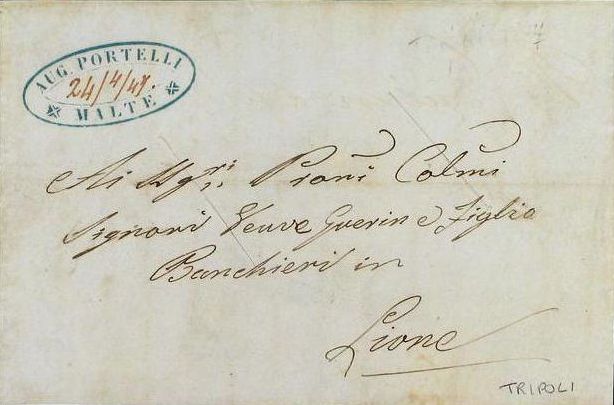 AUG. PORTELLI
24/4/47.
MALTE
Ai Sigri
Signori Veuve Guerin e Figlio
Banchieri in
Lione
TRIPOLI